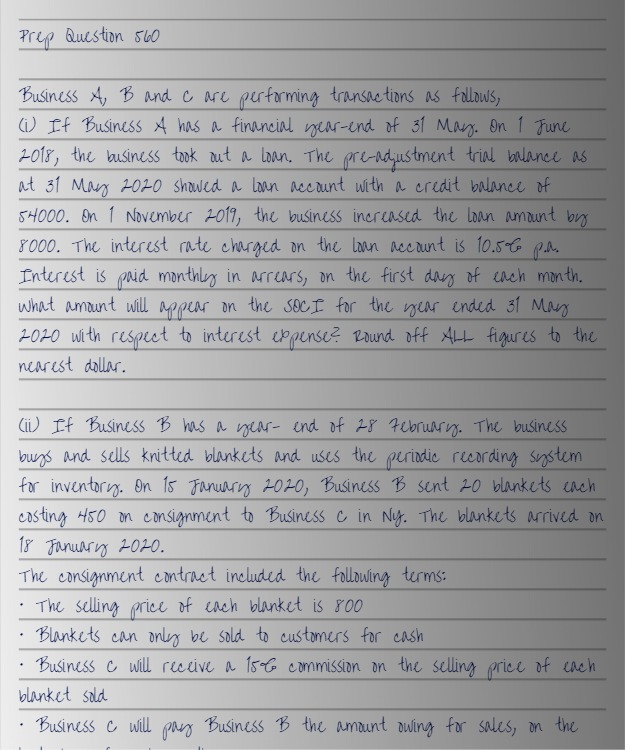 Prep Question 560
Business A, B and C are performing transactions as follows,
(i) If Business A has a financial year-end of 31 May. On 1 June
2018, the business took out a loan. The pre-adjustment trial balance as
at 31 May 2020 showed a loan account with a credit balance of
54000. On 1 November 2019, the business increased the loan amount by
8000. The interest rate charged on the loan account is 10.5% p.a.
Interest is paid monthly in arrears, on the first day of each month.
What amount will appear on the SOCI for the year ended 31 May
2020 with respect to interest expense? Round off ALL figures to the
nearest dollar.
(ii) If Business B has a year- end of 28 February. The business
buys and sells knitted blankets and uses the periodic recording system
for inventory. On 15 January 2020, Business B sent 20 blankets each
costing 450 on consignment to Business C in Ny. The blankets arrived on
18 January 2020.
The consignment contract included the following terms:
· The selling price of each blanket is 800
· Blankets can only be sold to customers for cash
· Business C will receive a 15% commission on the selling price of each
blanket sold
· Business C will pay Business B the amount owing for sales, on the